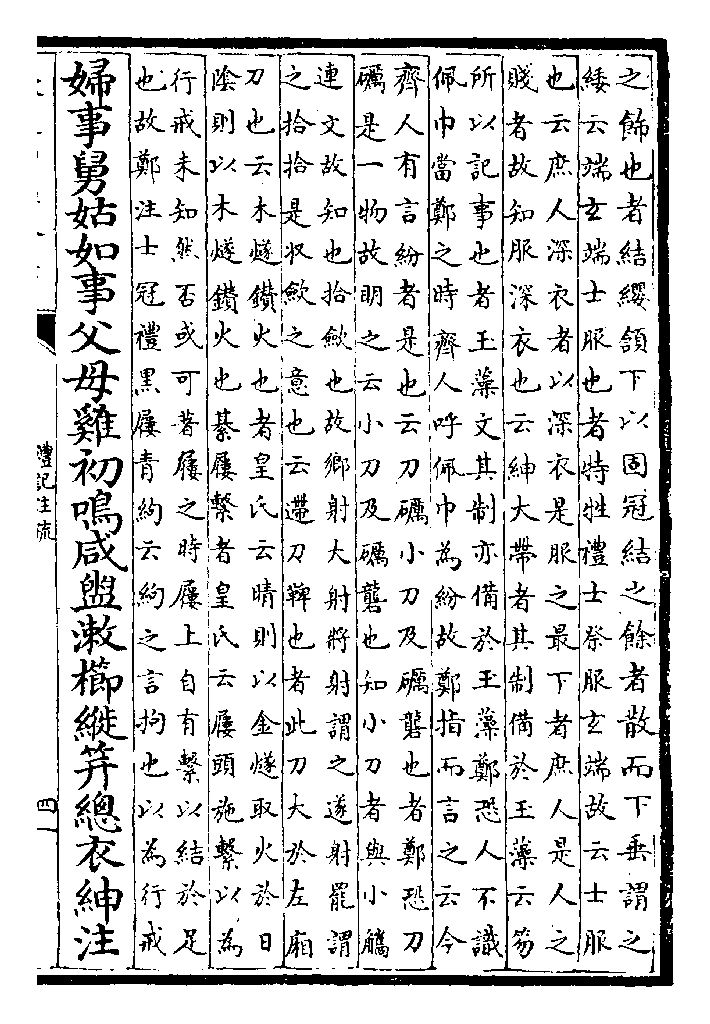 之飾也者結纓頷下以固冠結之餘者散而下垂謂之
緌云端玄端士服也者特牲禮士祭服玄端故云士服
也云庶人深衣者以深衣是服之最下者庶人是人之
賤者故知服深衣也云紳大帶者其制備於玉藻云笏
所以記事也者玉藻文其制亦備於玉藻鄭恐人不識
佩巾當鄭之時齊人呼佩巾為紛故鄭指而言之云今
齊人有言紛者是也云刀礪小刀及礪礱也者鄭恐刀
礪是一物故明之云小刀及礪礱也知小刀者與小觿
連文故知也拾斂也故鄉射大射將射謂之遂射罷謂
之拾拾是收斂之意也云遰刀鞞也者此刀大於左廂
刀也云木燧鑽火也者皇氏云晴則以金燧取火於日
陰則以木燧鑽火也綦屨繫者皇氏云屨頭施繫以為
行戒未知然否或可著屨之時屨上自有繫以結於足
也故鄭注士冠禮黑屨青絇云絇之言拘也以為行戒
婦事舅姑如事父母雞初鳴咸盥漱櫛縰笄總衣紳注
禮記注疏
四